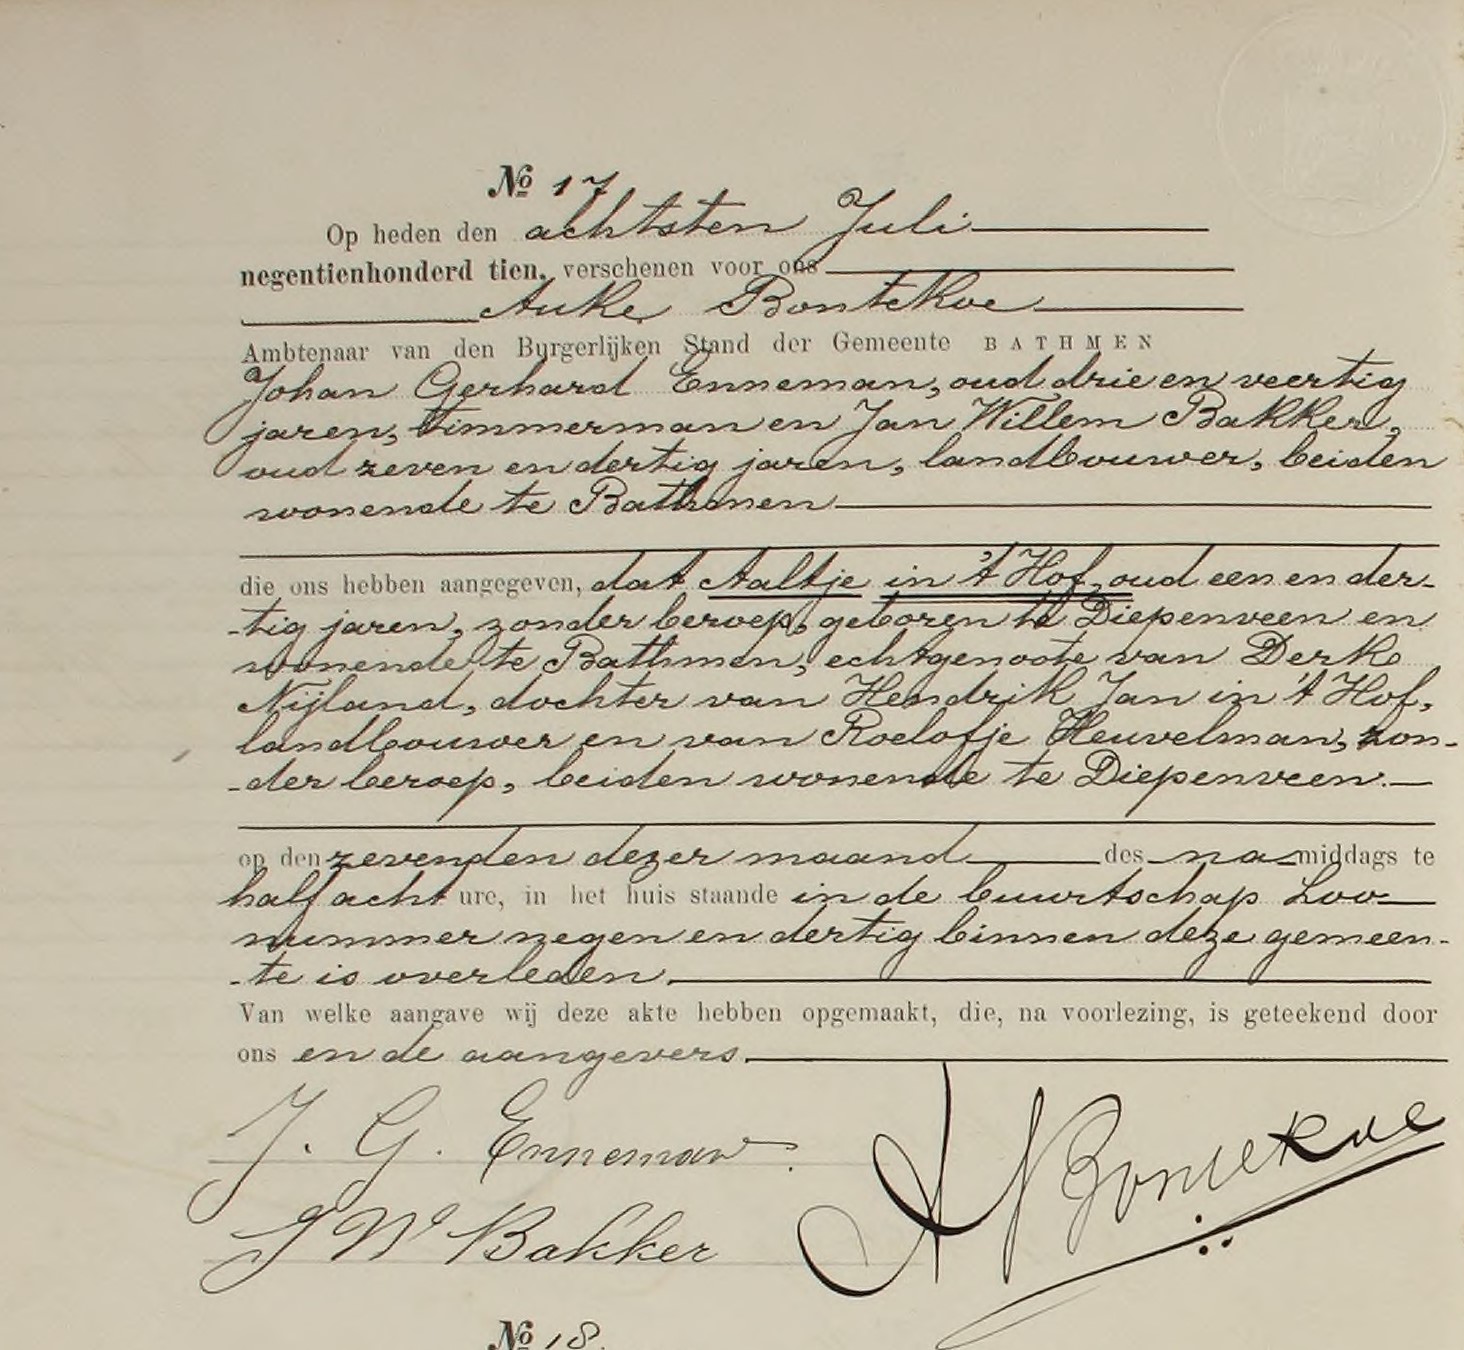 № 17
Op heden den achtsten Juli
negentienhonderd tien, verschenen voor ons
Auke Bontekoe
Ambtenaar van den Burgerlijken Stand der Gemeente BATHMEN
Johan Gerhard Enneman, oud drie en veertig
jaren, timmerman en Jan Willem Bakker,
oud zeven en dertig jaren, landbouwer, beiden
wonende te Bathmen
die ons hebben aangegeven, dat Aaltje in 't Hof, oud een en der-
-tig jaren, zonder beroep, geboren te Diepenveen en
wonende te Bathmen, echtgenoote van Derk
Nijland, dochter van Hendrik Jan in 't Hof,
landbouwer en van Roelofje Heuvelman, zon-
-der beroep, beiden wonende te Diepenveen.
op den zevenden dezer maand des na middags te
half acht ure, in het huis staande in de buurtschap Loo
nummer negen en dertig binnen deze gemeen-
-te is overleden.
Van welke aangave wij deze akte hebben opgemaakt, die, na voorlezing, is geteekend door
ons en de aangevers.
J. G. Enneman.
J W Bakker
A Bontekoe
№ 18.